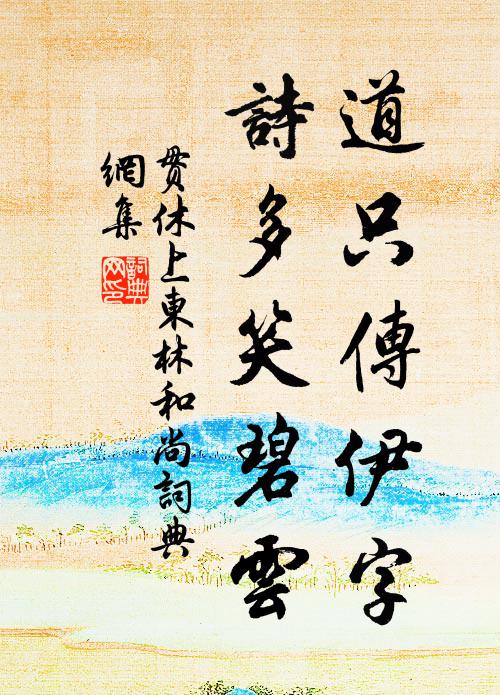 道只傳伊字
詩多笑碧雲
貫休上東林和尚詞典
網集
詞典
网印